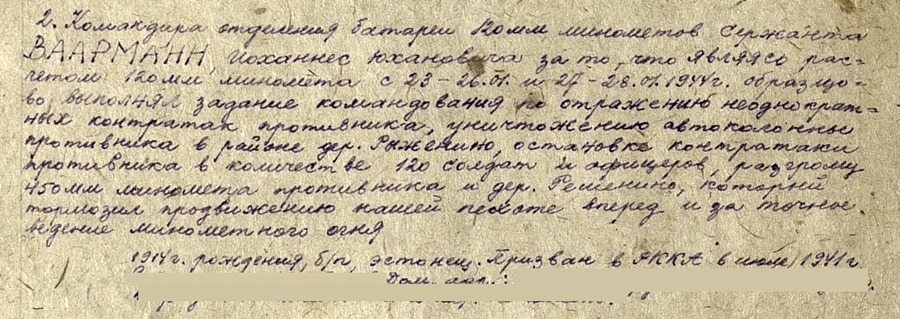 2. Командира отделения батареи 120мм минометов Сержанта
ВААРМАНН, Иоханнес Юхановича за то, что являясь рас-
четом 120мм миномета с 23-26.07. и 27-28.07.1944г. образцо-
во выполнял задание командования по отражению неоднократ-
ных контратак противника, уничтожению автоколонны
противника в районе дер. Рыженино, остановке контратаки
противника в количестве 120 солдат и офицеров, разгрому
450мм миномета противника и дер. Решенино, который
тормозил продвижению нашей пехоте вперед и за точное
ведение минометного огня
1914г. рождения, б/п, эстонец. Призван в РККА в июле 1941г.
Дом. адр.: